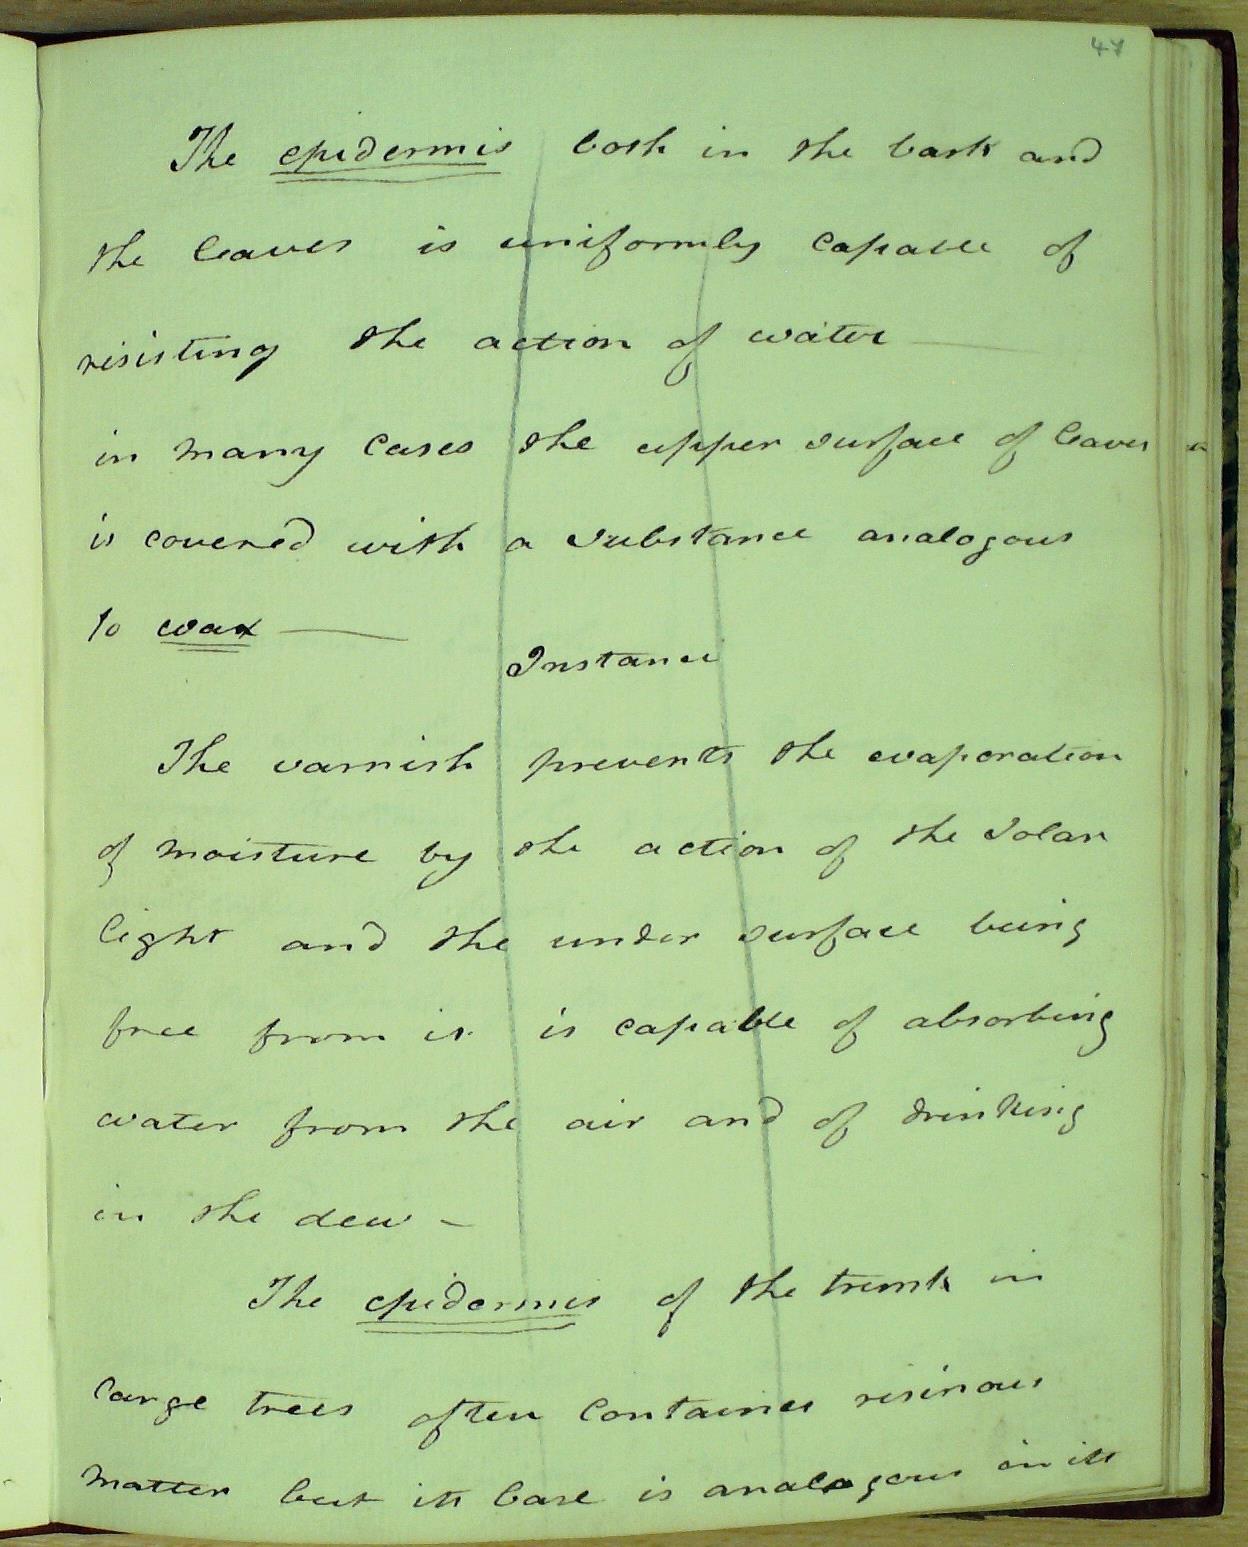 47
The epidermis both in the bark and
the leaves is uniformly capable of
resisting the action of water —
in many cases the upper surface of leaves
is covered with a substance analogous
to wax —
Instance
The varnish prevents the evaporation
of moisture by the action of the solar
light and the under surface being
free from it is capable of absorbing
water from the air and of drinking
in the dew –
The epidermis of the trunk in
large trees often contains resinous
matter but its base is analogous in its